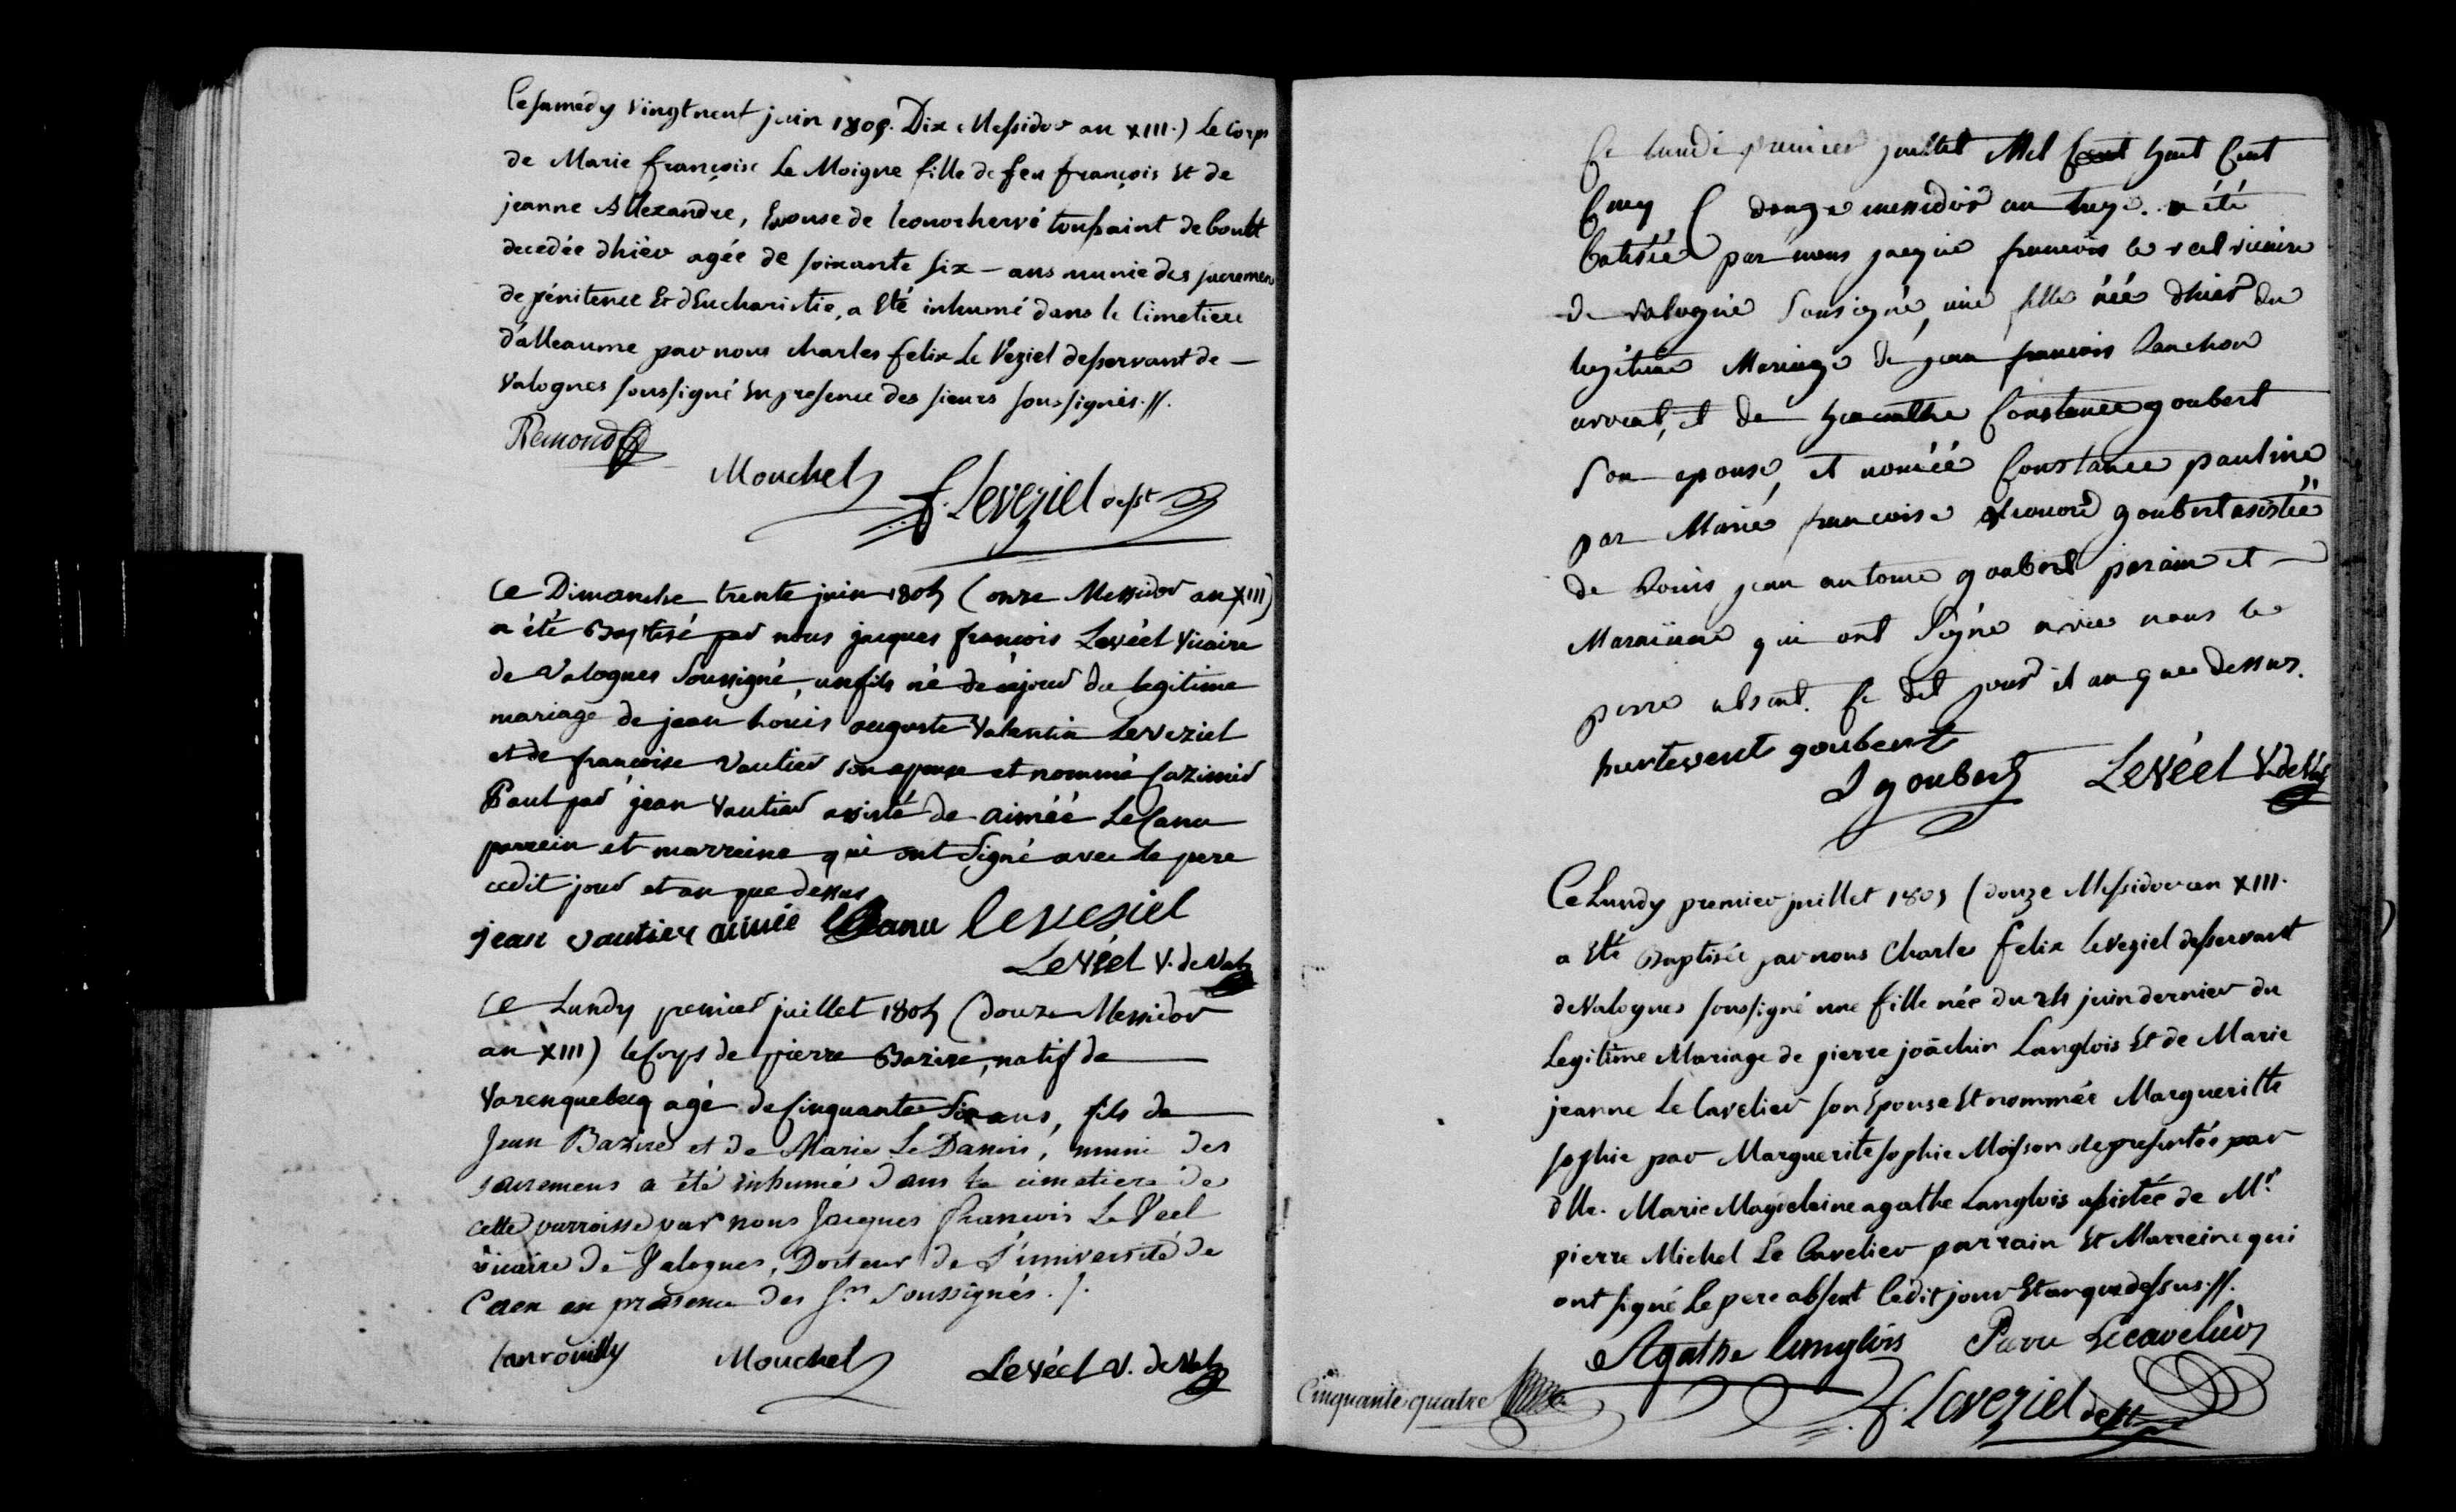 Ce samedy vingtneuf juin 1805. Dix Messidor an XIII.) Le Corps
de Marie françoise Le Moigne fille de feu françois Et de
jeanne Allexandre, Epouse de leonor hervé toussaint de
decedée dhiév agée de soixante six - ans munie des sacremens
de pénitence Et dEucharistie, a Eté inhumé dans le Cimetiere
d'alleaume par nous charles felix Le Veziel desservant de -
Valognes soussigné En presence des sieurs soussignés.//.
Remond
Mouchel f. Leveziel desst
Ce Dimanche trente juin 1805 (onze Messidor an XIII)
a été Baptisé par nous jacques francois Levéel Vicaire
de Valognes Soussigné, un fils né de ce jour du legitime
mariage de jean Louis auguste Valentin Leveziel
et de francoise Vautier son epouse et nommé Cazimir
Paul par jean Vautier assisté de aimée LeCanu
parrein et marreine qui ont Signé avec le pere
cedit jour et an que dessus
jean vautier aimée leCanu leveziel
Levéel V. de Val
Ce Lundy premier juillet 1805 (douze Messidor
an XIII) le Corps de pierre Bazire, natif de
Varenguebecq agé de Cinquante Six ans, fils de
Jean Bazire et de Marie Le Danois, muni des
sacremens a été inhumé dans le cimetiere de
cette parroisse par nous Jacques francois Le Veel
vicaire de Valognes, Docteur de L'université de
Caen en présence des Srs Soussignés./.
Mouchel Levéel V. de Val
Ce lundi premier juillet Mil huit Cent
Cinq ( douze messidor an treize. a été
batisée par nous jacque francois le veel vicaire
de valogne Sousigné, une fille née dhier du
legitime Mariage de jean francois
avocat, et de hyacinthe Constance goubert
Son epouse, et nomée Constance pauline
par Marie francoise eleonore goubert asistée
de Louis jean antoine goubert parain et
Maraine qui ont Signé avec nous le
perre absent. Ce dit jour et an que dessus.
hurtevent goubert
J goubert Levéel V. de Val
Ce Lundy premier juillet 1805 (douze Messidor an XIII.
a Eté Baptisée par nous Charles felix leveziel desservant
de Valognes soussigné une fille née du 24 juin dernier du
Legitime Mariage de pierre joachin Langlois Et de Marie
jeanne Le Cavelier son Epouse Et nommée Margueritte
sophie par Marguerite sophie Moisson represertée par
dlle. Marie Magdelaine agathe Langlois assistée de Mr.
pierre Michel Le Cavelier parrain Et Marreine qui
ont signé Le pere absent Cedit jour Et an que dessus.//.
Agathe langlois Pierre Lecavelier
Cinquante quatre f. Leveziel desst